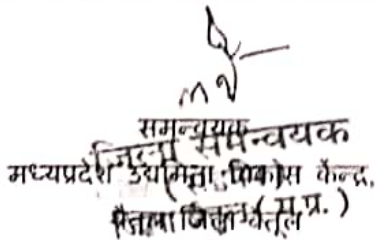 समन्वयक
जिला समन्वयक
मध्यप्रदेश उद्यमिता विकास केन्द्र,
जिला बैतूल (म.प्र.)